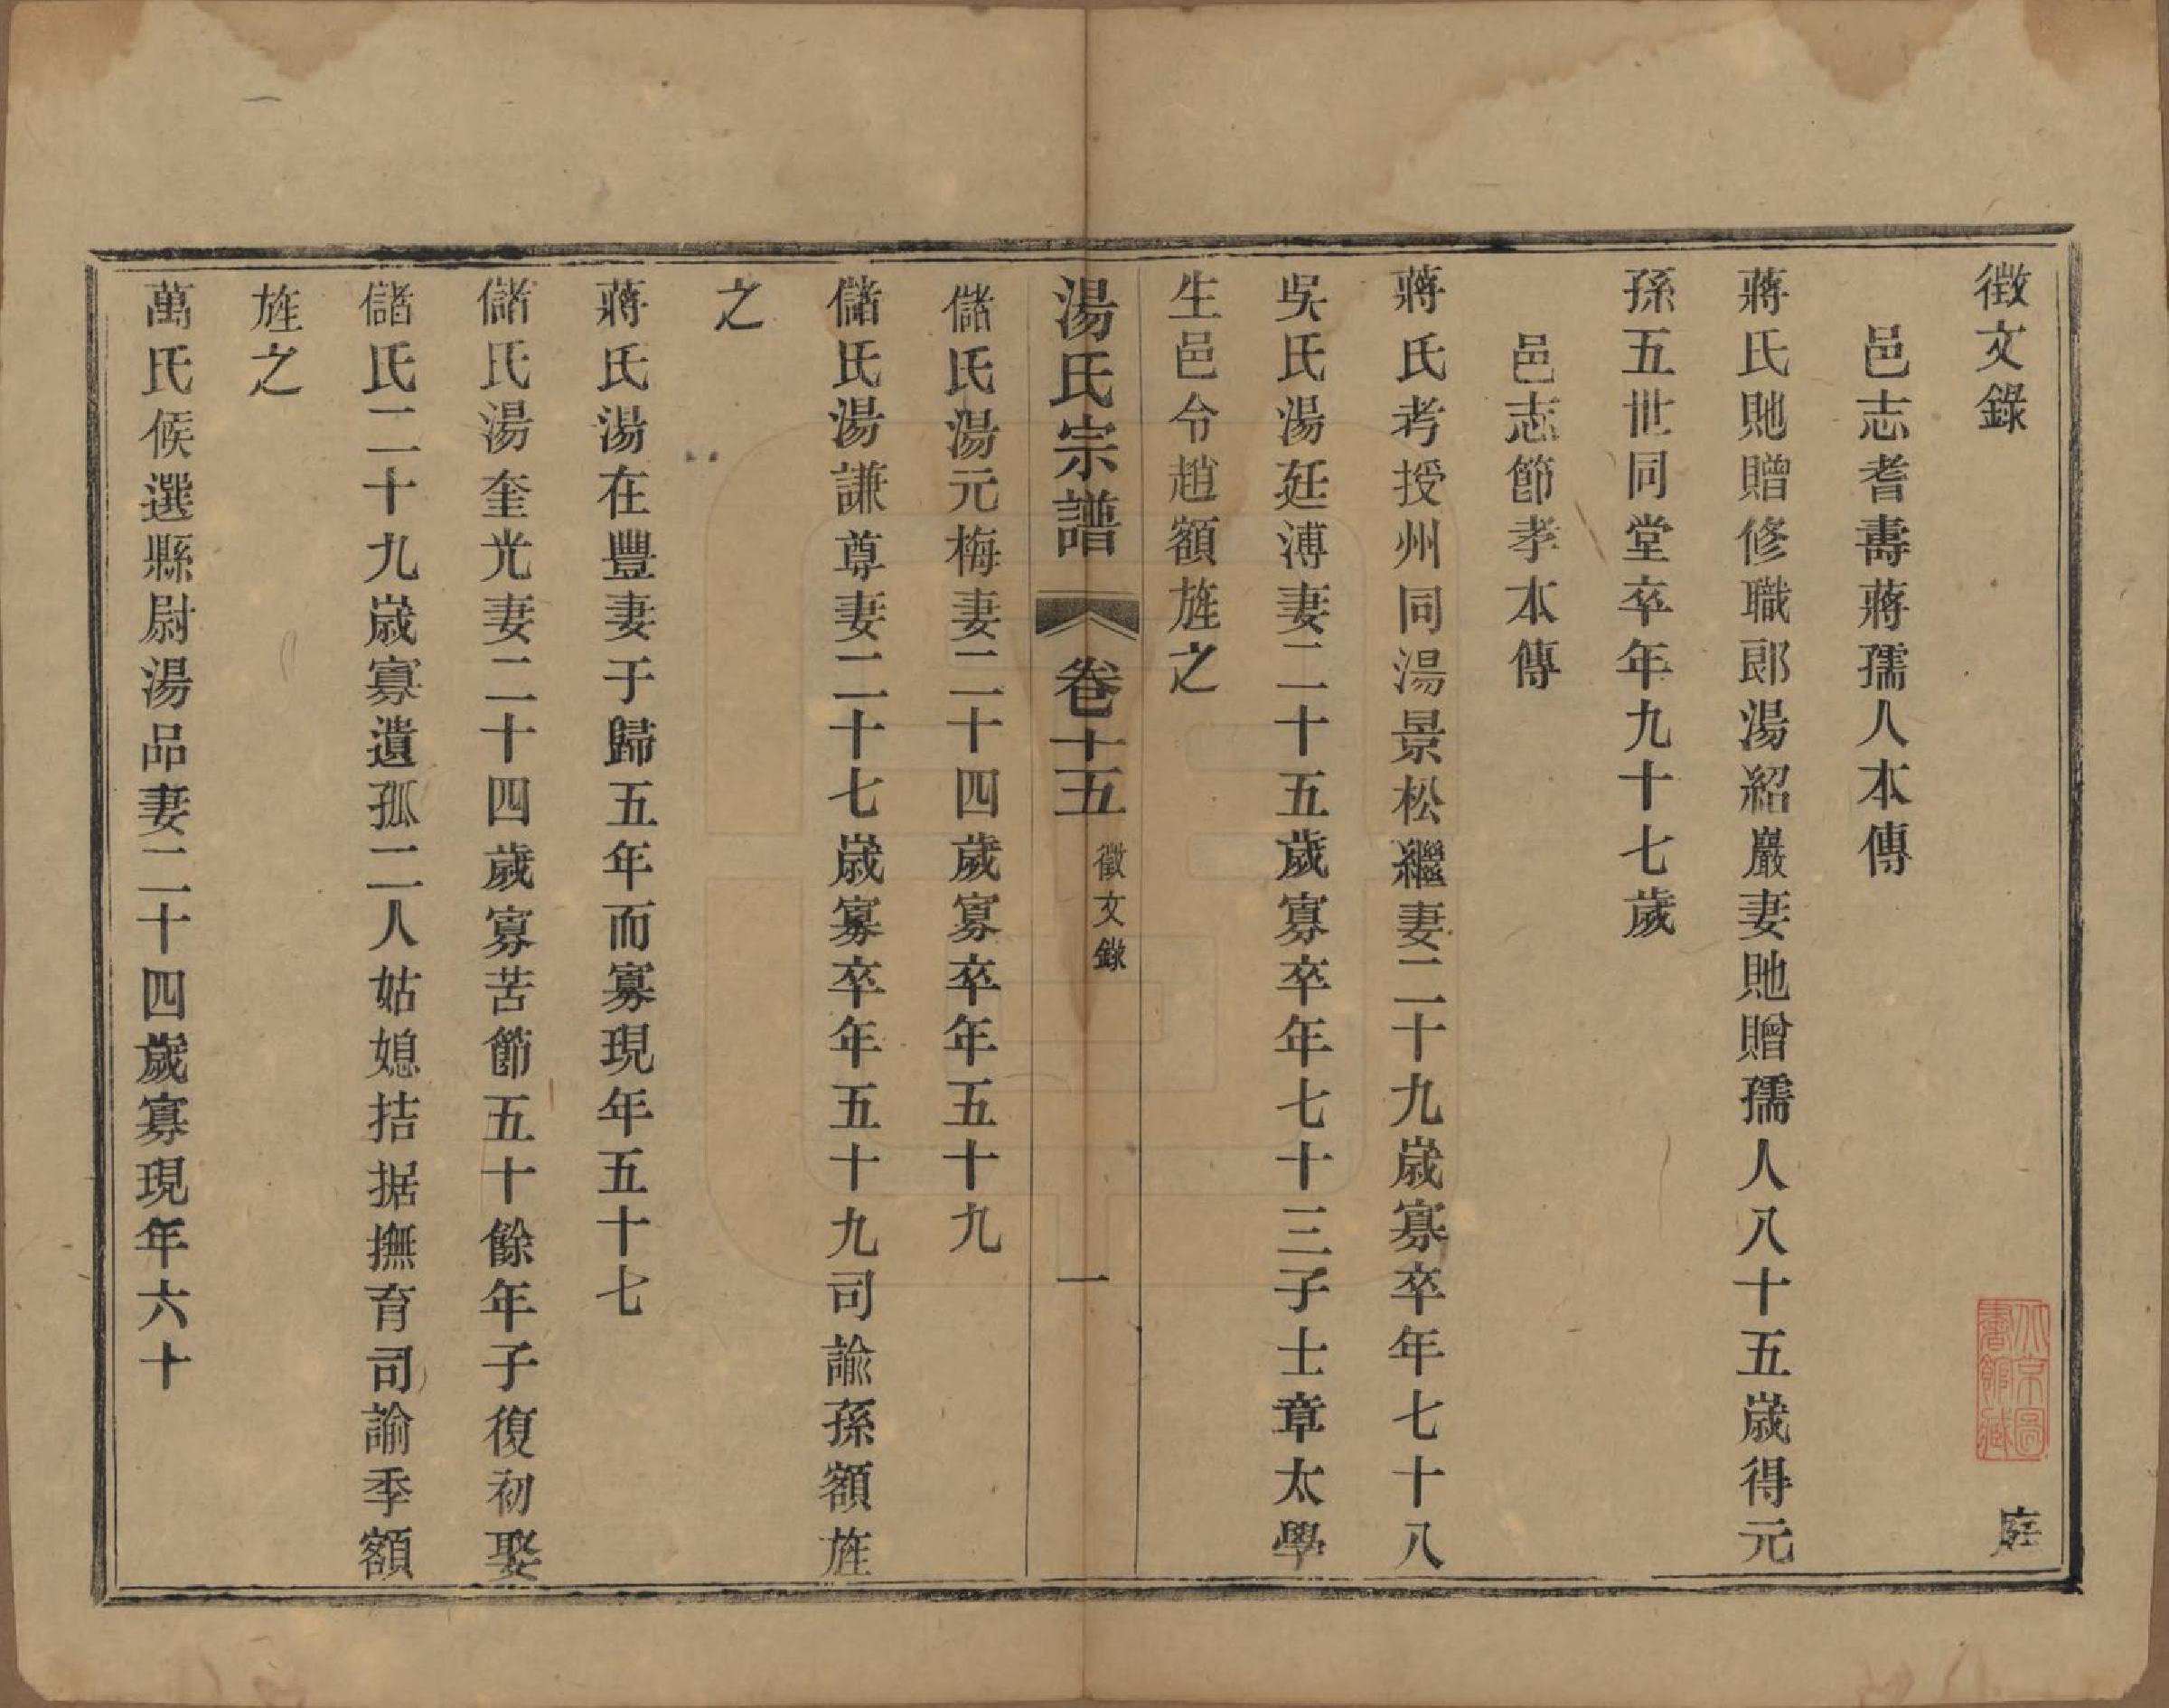 徵文錄
庭
邑志耆壽蔣孺人本傳
蔣氏貤贈修職郎湯紹巖妻貤贈孺人八十五歲得元
孫五世同堂卒年九十七歲
邑志節孝本傳
蔣氏考授州同湯景松繼妻二十九歲寡卒年七十八
吳氏湯廷溥妻二十五歲寡卒年七十三子士章太學
生邑令趙額旌之
湯氏宗譜 卷十五 徵文錄 一
儲氏湯元梅妻二十四歲寡卒年五十九
儲氏湯謙尊妻二十七歲寡卒年五十九司諭孫額旌
之
蔣氏湯在豐妻于歸五年而寡現年五十七
儲氏湯奎光妻二十四歲寡苦節五十餘年子復初娶
儲氏二十九歲寡遺孤二人姑媳拮据撫育司諭季額
旌之
萬氏候選縣尉湯品妻二十四歲寡現年六十
北京圖書館藏